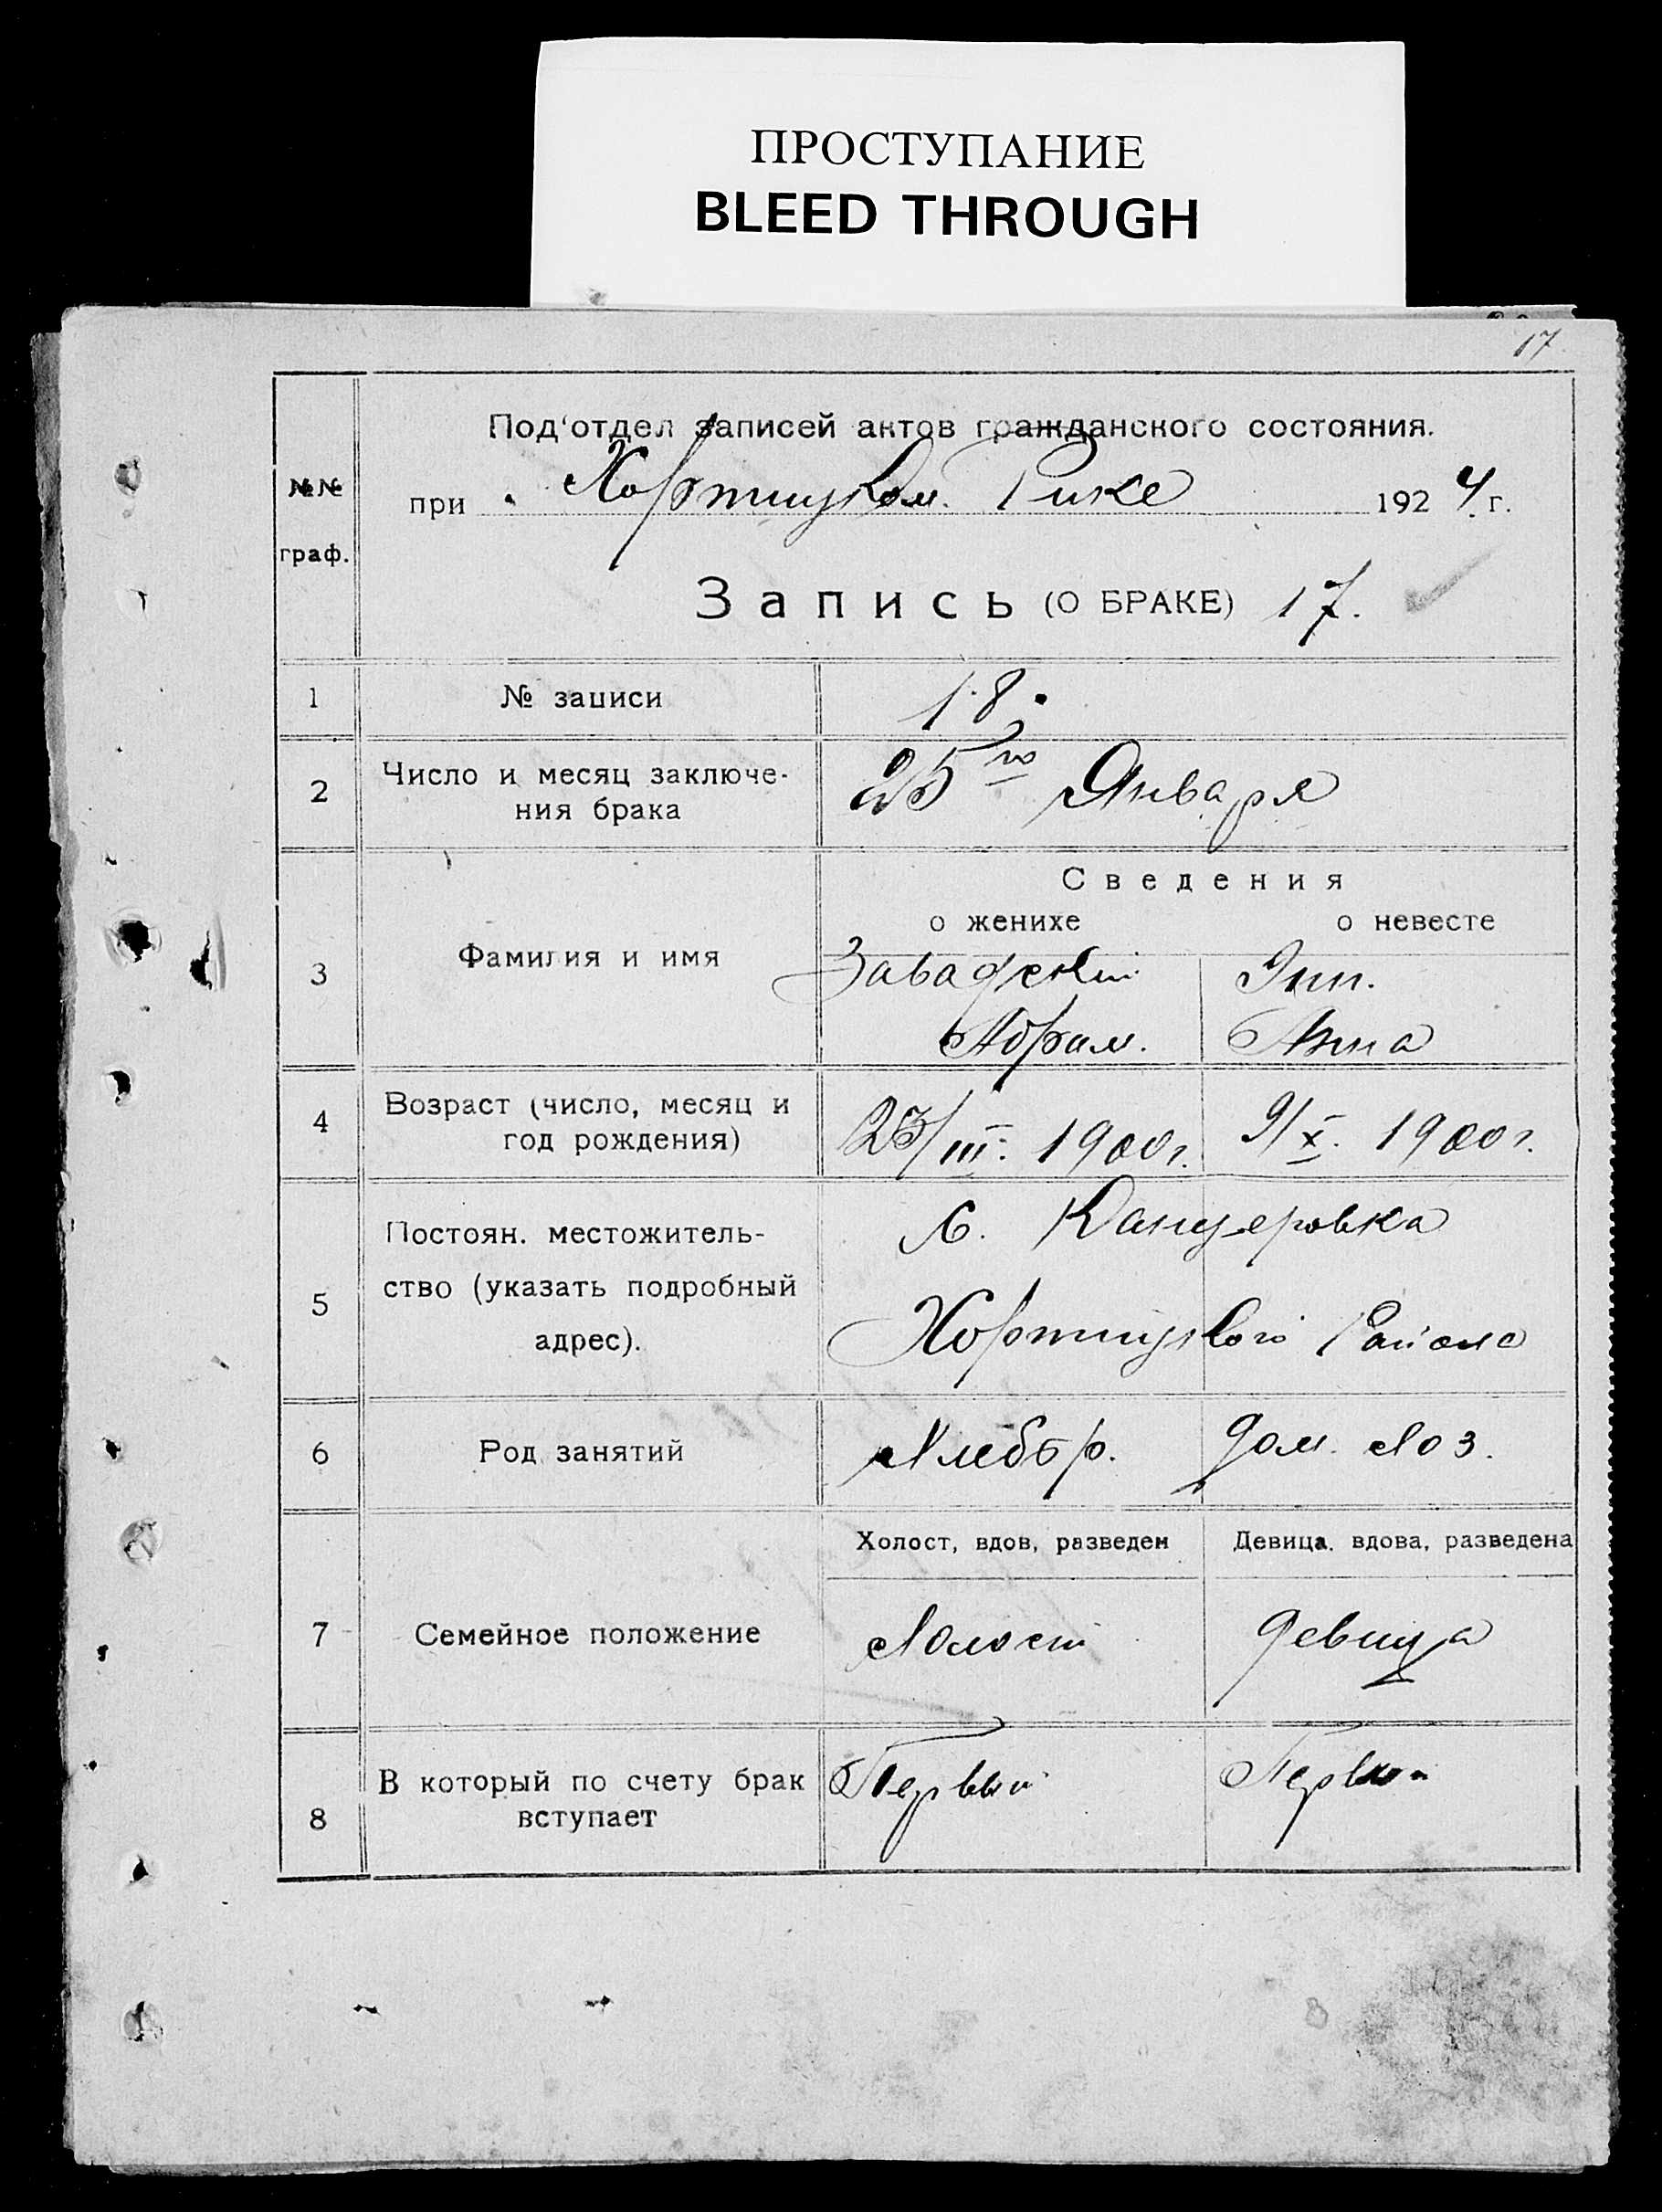 ПРОСТУПАНИЕ
BLEED THROUGH
17
Под'отдел записей актов гражданского состояния.
№№ граф.
при Хортицком Рике 1924 г.
Запись (О БРАКЕ) 17.
1 № записи 18.
2 Число и месяц заключе-
ния брака
25го Января
Сведения
о женихе о невесте
3 Фамилия и имя
Завадский Эпп.
Абрам. Анна
4 Возраст (число, месяц и
год рождения)
23/III. 1900г. 9/X. 1900г.
5 Постоян. местожитель-
ство (указать подробный
адрес).
Х. Канцеровка
Хортицкого Района
6 Род занятий
Хлебор. дом. хоз.
Холост, вдов, разведен Девица, вдова, разведена
7 Семейное положение
Холост девица
8 В который по счету брак
вступает
Первый Первый